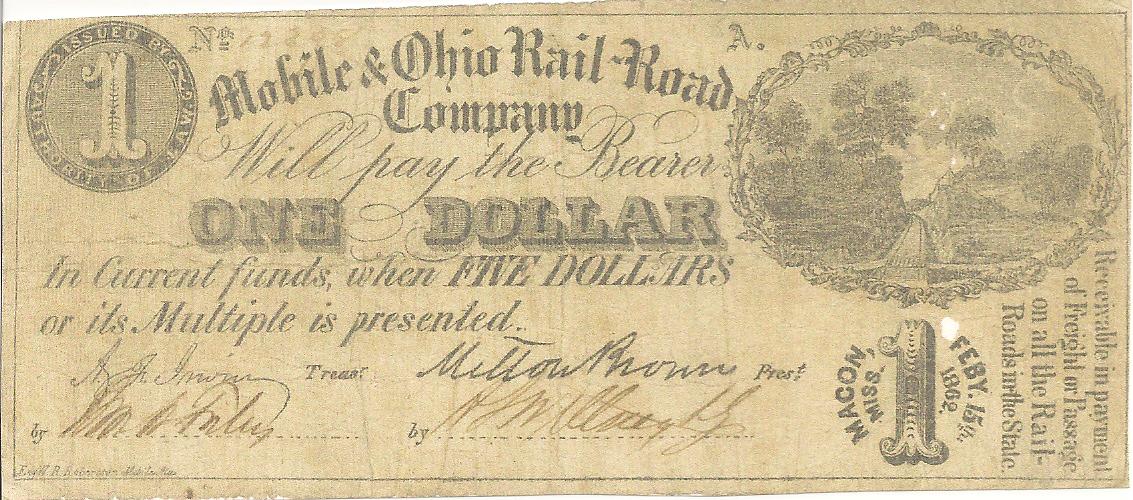 ISSUED BY
AUTHORITY OF
No.
A.
Mobile & Ohio Rail-Road
Company
Will pay the Bearer
ONE DOLLAR
In Current funds, when FIVE DOLLARS
or its Multiple is presented.
Treasr
Milton Brown Prest
by
by
1
1
MACON,
MISS.
FEBY. 15th.
1862
Receivable in payment
of Freight or Passage
on all the Rail-
Roads in the State.